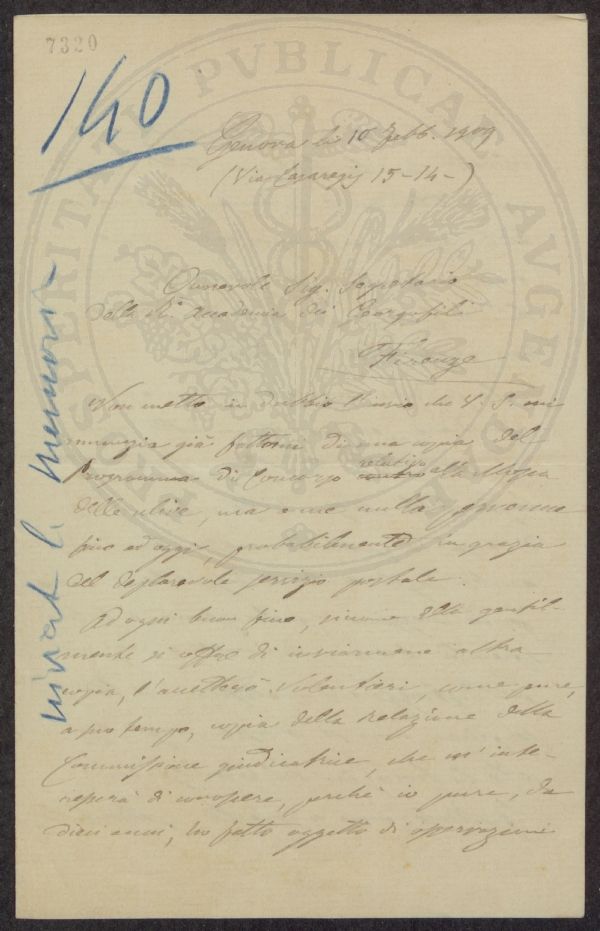 7320
140
Genova li 10 Febb. 1909
(Via Casaregis 15-14-)
Onorevole Sig. Segretario
della R. Accademia dei Georgofili
Firenze
Non metto in dubbio l'invio che V. S. mi
annunzia già fattomi di una copia del
Programma di Concorso relativo alla Mosca
delle ulive, ma a me nulla pervenne
fino ad oggi, probabilmente in grazia
del deplorevole servizio postale.
Ad ogni buon fine, siccome Ella gentil-
mente si offre di inviarmene altra
copia, l'accetterò volentieri, come pure,
a suo tempo, copia della relazione della
Commissione giudicatrice, che m'inte-
resserà di conoscere, perchè io pure, da
dieci anni, ho fatto oggetto di osservazioni
PROSPERITATI PVBLICAE AVGENDAE